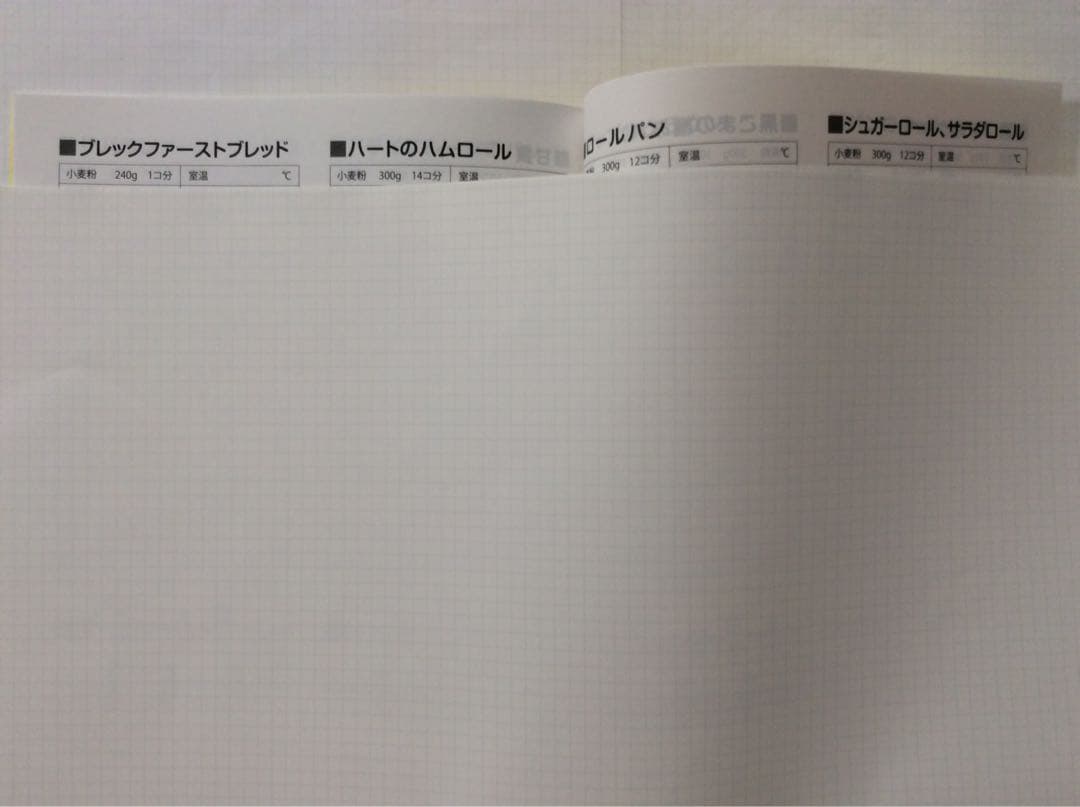 ■ブレックファーストブレッド
小麦粉 240g 1コ分 室温 ℃
■ハートのハムロール
小麦粉 300g 14コ分 室温
ロールパン
300g 12コ分 室温 ℃
■シュガーロール、サラダロール
小麦粉 300g 12コ分 室温 ℃